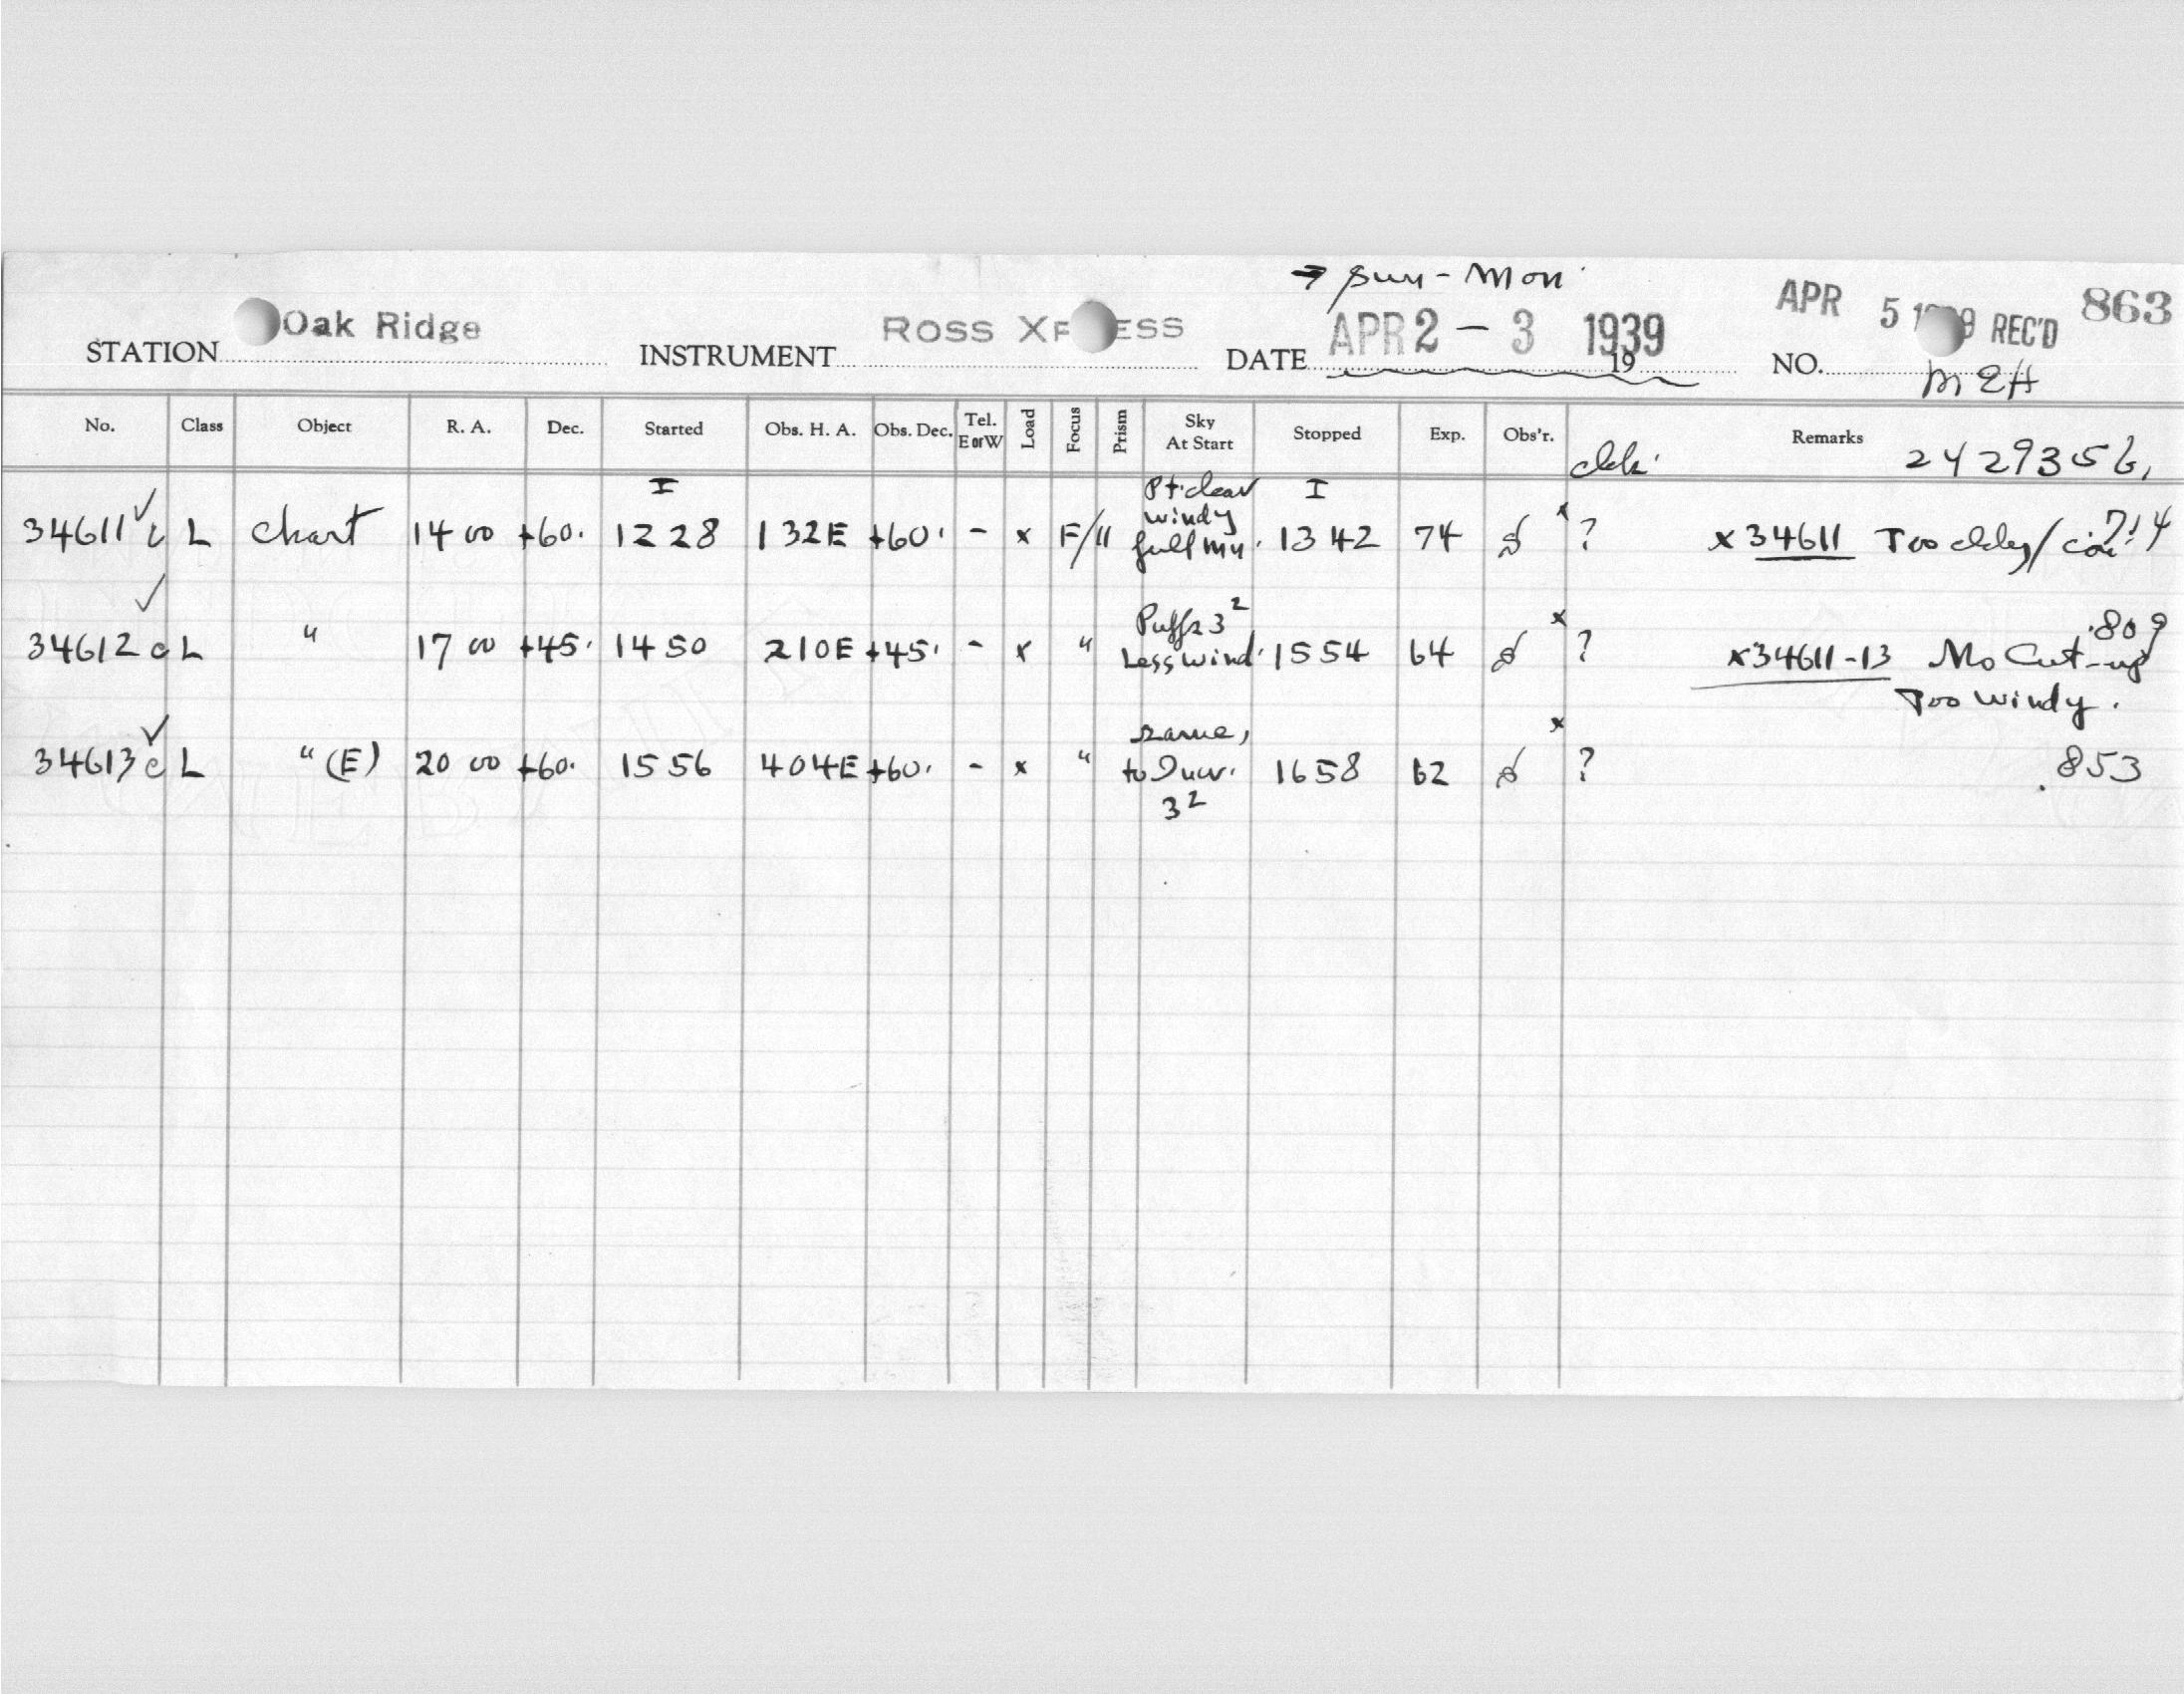 → Sun - Mon
STATION Oak Ridge INSTRUMENT ROSS XP ESS DATE APR 2 - 3 1939 19 NO. APR 5 REC'D 863
MEH
No. Class Object R. A. Dec. Started Obs. H. A. Obs. Dec. Tel. E or W Load Focus Prism Sky At Start Stopped Exp. Obs'r. Remarks 2429356.
I Pt. clear I
windy
34611 c L Chart 14 00 +60. 1228 132E +60. - x F/11 full mn. 1342 74 x ? x 34611 Too cldy .714
Puffs 3² .809
34612 c L " 17 00 +45. 1450 210E +45. - x " Less wind. 1554 64 x ? x34611-13 No Cut-up
Too windy.
same,
34613 c L " (E) 20 00 +60. 1556 404E +60. - x " to 1658 62 x ? .853
3²